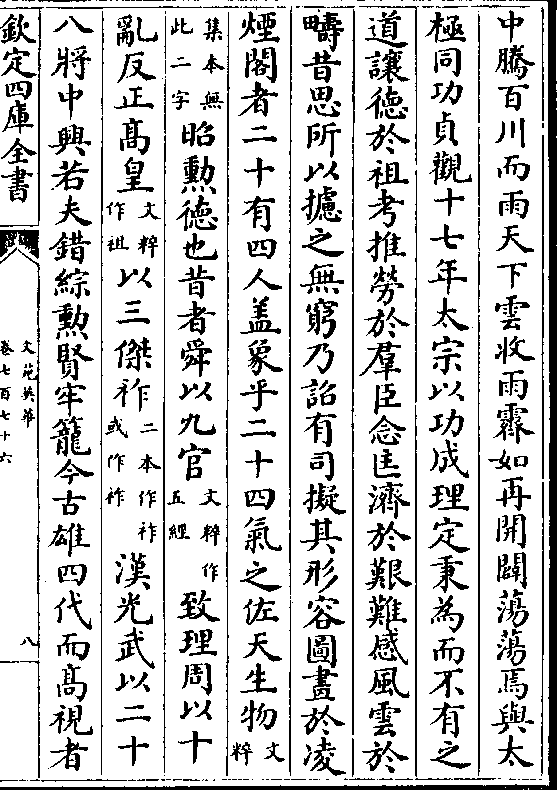 中騰百川而雨天下雲收雨霽如再開闢蕩蕩焉與太
極同功貞觀十七年太宗以功成理定秉為而不有之
道讓德於祖考推勞於羣臣念匡濟於艱難感風雲於
疇昔思所以攄之無窮乃詔有司擬其形容圖畫於凌
煙閣者二十有四人盖象乎二十四氣之佐天生物文粹
集本無此二字昭勲德也昔者舜以九官文粹作五經致理周以十
亂反正高皇文粹作祖以三傑祚二本作祚或作祚漢光武以二十
八將中興若夫錯綜勲賢牢籠今古雄四代而高視者
欽定四庫全書
文苑英華
卷七百七十六
八